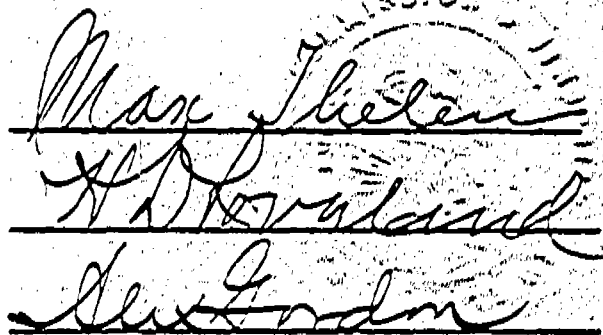 Max Thelen
H D Loveland
Alex Gordon